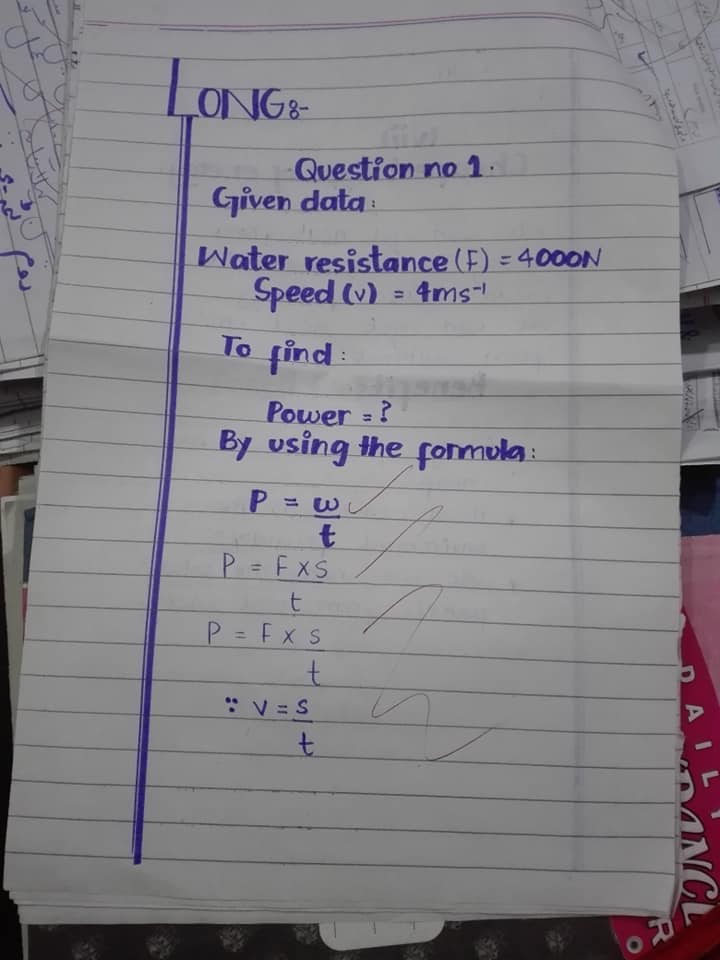 LONG:-
Question no 1.
Given data:
Water resistance (F) = 4000N
Speed (v) = 4ms⁻¹
To find:
Power = ?
By using the formula:
P = w
t
P = F x S
t
P = F x S
t
∵ V = S
t
DAILY